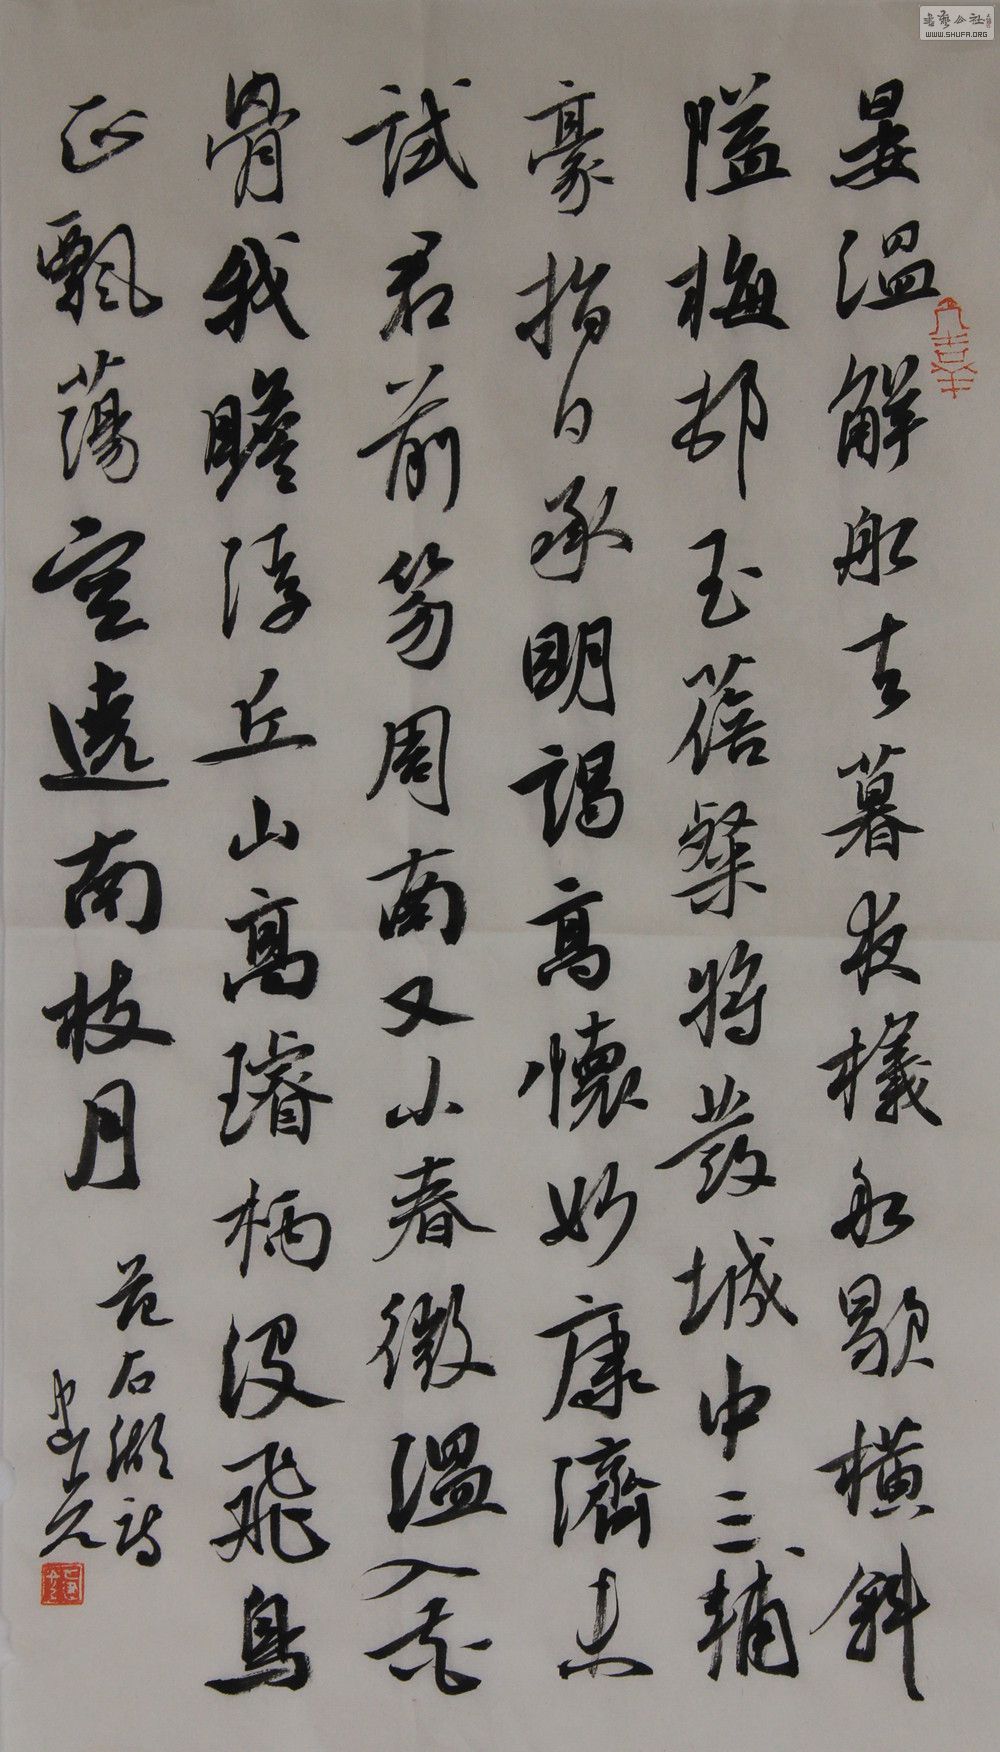 晏溫解船去暮夜檥船歇橫斜
隘梅邨玉蓓粲將發城中三輔
豪指日承明謁高懷妙康濟未
試君前笏周南又小春微溫入花
骨我瞻浮丘山高璿柄沒飛鳥
正飄蕩空遶南枝月
范石湖詩
書藝公社
WWW.SHUFA.ORG